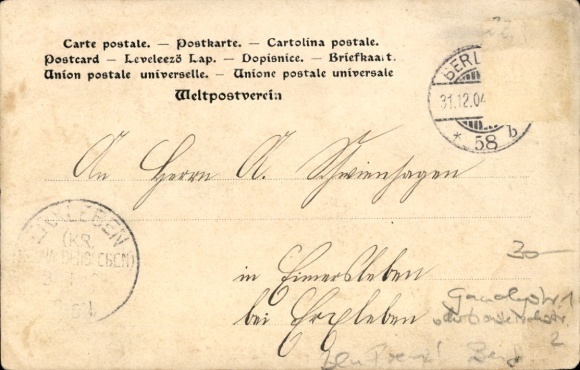 Carte postale. — Postkarte. — Cartolina postale.
Postcard — Leveleezö Lap. — Dopisnice. — Briefkaart.
Union postale universelle. — Unione postale universale
Weltpostverein
BERL
31.12.04
* 58 b
An Herrn A. Schwienhagen
LEBEN
(KR.
in Eimersleben
bei Erxleben
30—
2